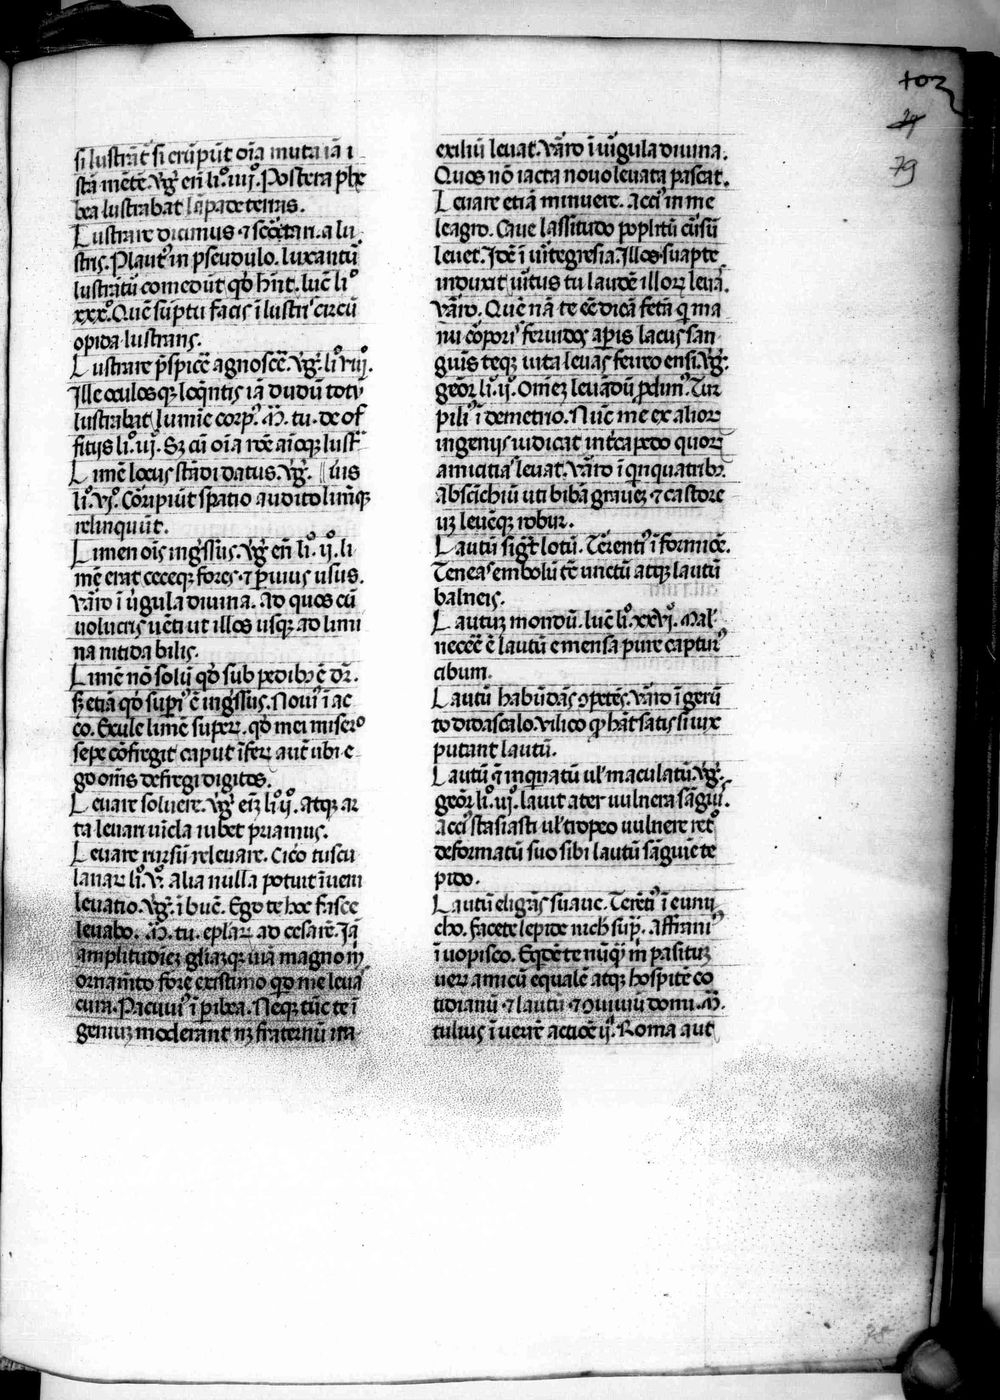 103
29
79
si lustrāt si erūpūt oīa muta iā i
stā mēte. v̄g̊ en̄ li.º iiij.º Postera phe
bea lustrabat lāpade terras.
Lustrare dicimus ⁊ sēctari. a lu
stris. Plautꝰ in pseudulo. luxantū
lustrātū comedūt qd̊ hn̄t. lucē li.º
xxx.º Quē sūptū facis ī lustriˢ circū
opida lustrans.
Lustrare p̄spicē agnoscē. v̄g̊. li.º viij.º
Ille oculos qꝫ loq̄ntis iā dudū totū
lustrabat lumīe corpꝰ. M̄. tu. de of
fitijs li.º iij.º Sꝫ cū oīa rōe aīoqꝫ lustr̄
Limē locus stādi datus. v̄g̊. ‖ ūis
li.º vj.º Cōripiūt spatio audito limīqꝫ
relinquūt.
Limen oīs ingr̄ssus. v̄g̊ en̄ li.º ij.º li
mē erat cecęqꝫ fores. ⁊ pꝑuius usus.
varō ī ūgula diuina. Ad quos cū
uolucris uēti ut illos usqꝫ ad limi
na nitida bilis.
Limē nō solū qd̊ sub pedibꝫ ē dr̄.
sꝫ etiā qd̊ supꝰ ē ingr̄ssus. Nouiꝰ ī ac
co. Exule limē superꝝ. qd̊ mei misero
sepe cōfregit caput īferꝝ aut̄ ubi e
go om̄s defregi digitos.
Leuare soluere. v̄g̊ eꝫ li.º ij.º atqꝫ ar
ta leuari uīcla iubet priamus.
Leuare rursū releuare. Cicō tuscu
lanaꝝ li.º v.º alia nulla potuit īueni
leuatio. v̄g̊. ī buc̄. Ego te hoc fasce
leuabo. M̄. tu. eplaꝝ ad cesarē. Iā
amplitudīeꝫ gl̄iamqꝫ uiā magno m̄
ornamīto fore existimo qd̊ me leua
cura. Pacuuiꝰ ī pibea. Neqꝫ tūc te ī
geniuꝫ moderant nꝫ fraternū ira
exiliū leuat. vārō ī uīgula diuina.
Quos nō iacta nouo leuata pascat.
Leuare etiā minuere. acciꝰ in me
leagro. Caue lassitudo poplitū cūsū
leuet. Idē ī uītegresia. Illos suapte
induxit uītus tu laudē illoꝝ leua.
vārō. Quē nā te ēē dicā feta q̄ ma
nu cōporiˢ feruidos ap̄is lacus san
guīs teqꝫ uita leuas ferreo ensi. v̄g̊.
geōr. li.º ij.º Om̄eꝫ leuādū p̄dimꝰ. Tur
piliꝰ ī demetrio. Nūc me ex alioꝝ
ingeniis iudicat intcapedo quoꝝ
amicitiaˢ leuat. vārō ī qnquatribꝫ.
Abscīchiū uti bibā grauꝫ ⁊ castore
uꝫ leuēqꝫ robur.
Lautū sigt̄ lotū. Terentiꝰ ī formiōē.
Teneaˢ embolū cē unctū atqꝫ lautū
balneis.
Lautuꝫ mondū. lucē li.º xxvj.º Mal
necēē ē lautū e mensa pure capturꝰ
cibum.
Lautū habūdās ꝯpetēs. vārō ī gerū
to didascalo. vilico qd̊ hāt satis si uix
putant lautū.
Lautū ē inquatū ul̓ maculatū. v̄g̊.
geōr. li.º iij.º lauit ater uulnera sāgui.
acciꝰ stasiasti ul̓ tropeo uulnere retꝰ
deformatū suo sibi lautū sāguīe te
pido.
Lautū eligās suaue. Terētiꝰ ī eunu
cho. facete lepide nich̄ sup̄. affraniꝰ
ī uopisco. Eqdē te nūq̄ m̄ pasituꝫ
ueꝝ amicū equalē atqꝫ hospitē co
tidianū ⁊ lautū ⁊ ꝯuiuiū domi. M̄.
tulius ī uerr̄ actiōē ij. Roma aut